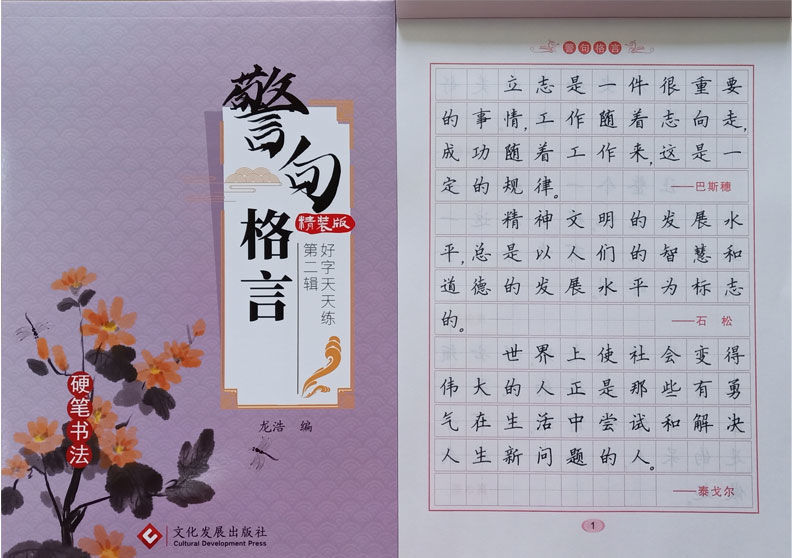 警句
格言
精装版
好字天天练
第二辑
硬笔书法
龙浩 编
文化发展出版社
Cultural Development Press
警句格言
立志是一件很重要
的事情,工作随着志向走,
成功随着工作来,这是一
定的规律。
——巴斯穗
精神文明的发展水
平,总是以人们的智慧和
道德的发展水平为标志
的。
——石 松
世界上使社会变得
伟大的人正是那些有勇
气在生活中尝试和解决
人生新问题的人。
——泰戈尔
1